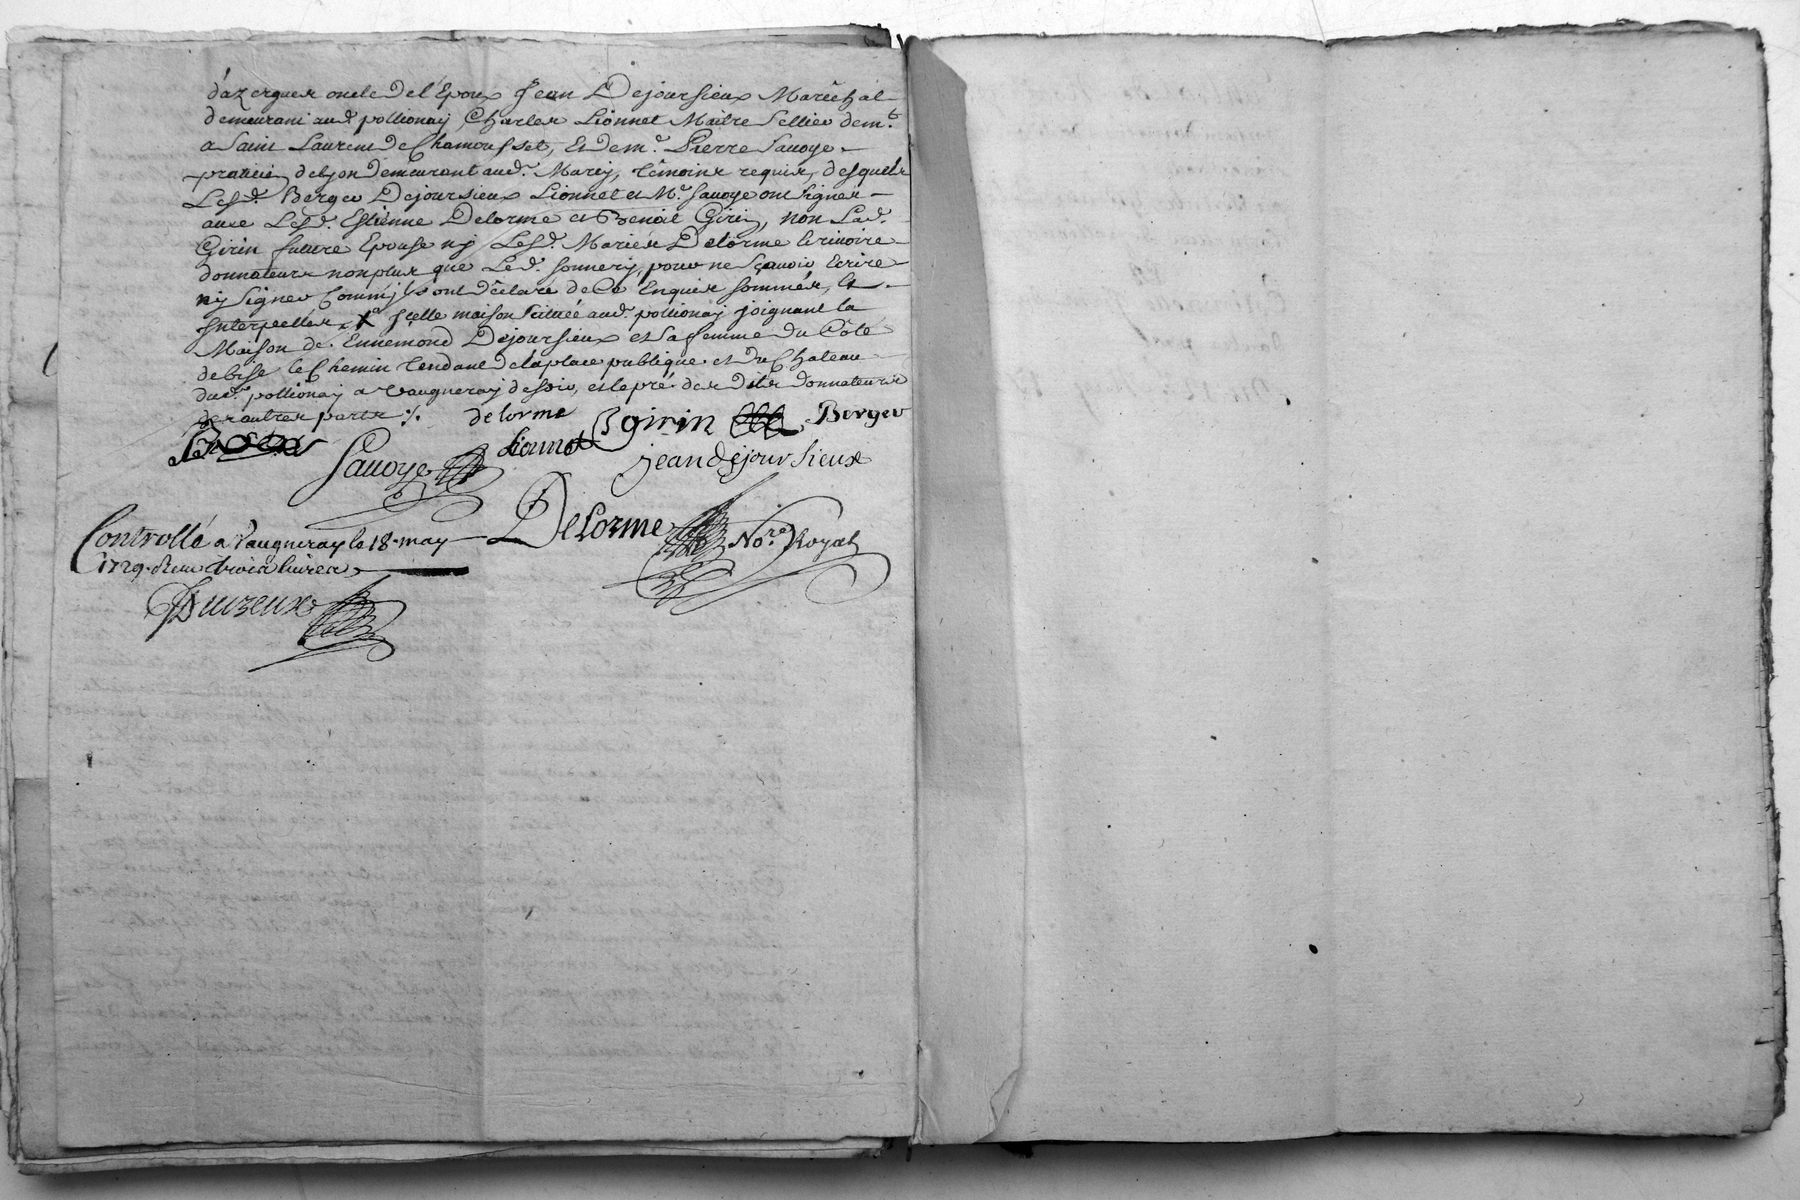 d'azergues oncle de l'Epoux Jean Dejoursieux Maréchal
demeurant aud. pollionay, Charles Lionnet Maitre Sellier demt.
a Saint Laurent de Chamousset, Et de mr. Pierre Sauoye
praticien de Lyon demeurant aud. Marcy, témoins requis, desquels
Lesd. Berger Dejoursieux Lionnet et Mr. Sauoye ont signés
auec Lesd. Estienne Delorme et Benoit Girin, non Lad.
Girin future Epouse ny Lesd. Mariés Delorme
donnateurs non plus que Led. Sonnery, pour ne Sçauoir Ecrire
ny Signer Comm'ils ont déclaré de Ce Enquis sommés, Et
Interpellés, X jcelle maison Scituée aud. pollionay joignant la
Maison de Ennemond Dejoursieux et Sa femme du Côté
de bise le Chemin tendant de la place publique et du Chateau
dud. pollionay a Vaugneray de soir, et le pré des dits donnateurs
des autres parts ./.
delorme B girin Berger
Sauoye Lionnet jean dejoursieux
DeLorme Nore. Royal
Controllé a Vaugneray le 18 may
1729. Reçu trois liures